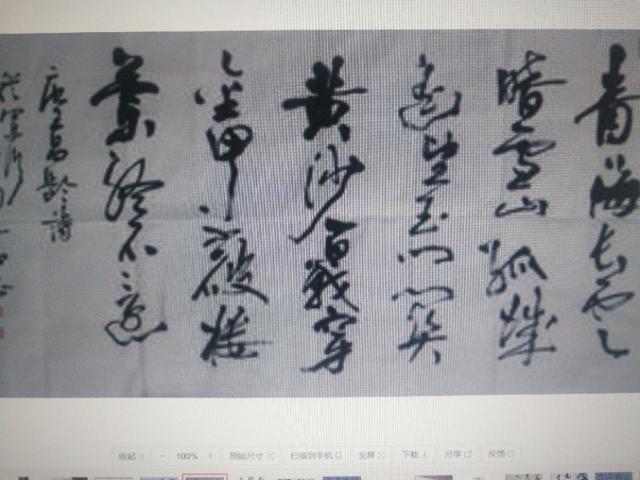 青海长云
暗雪山孤城
遥望玉门关
黄沙百戰穿
金甲不破楼
蘭终不還
唐王昌齡詩
收起 − 100% + 原始尺寸 扫描到手机 全屏 下载 分享 反馈